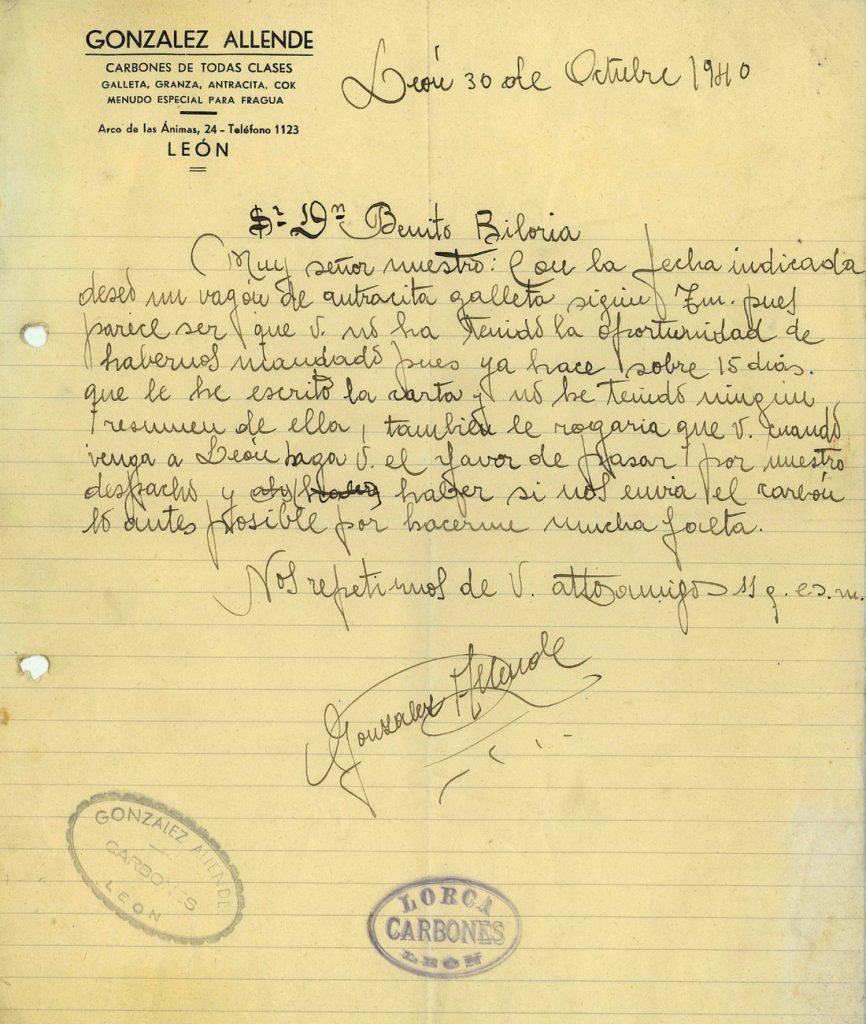 GONZALEZ ALLENDE
CARBONES DE TODAS CLASES
GALLETA, GRANZA, ANTRACITA, COK
MENUDO ESPECIAL PARA FRAGUA
Arco de las Ánimas, 24 - Teléfono 1123
LEÓN
León 30 de Octubre 1940
Sr Dn Benito Biloria
Muy señor nuestro: Con la fecha indicada
deseo un vagón de antracita galleta pues
parece ser que V. no ha tenido la oportunidad de
habernos mandado pues ya hace sobre 15 dias.
que le he escrito la carta y no he tenido ningun
resumen de ella, tambien le rogaria que V. cuando
venga a León haga V. el favor de pasar por nuestro
despacho y haber si nos envia el carbón
lo antes posible por hacerme mucha falta.
Nos repetimos de V. atto amigos ss q. e. s. m.
Gonzalez Allende
GONZALEZ ALLENDE
CARBONES
LEON
LORCA
CARBONES
LEÓN